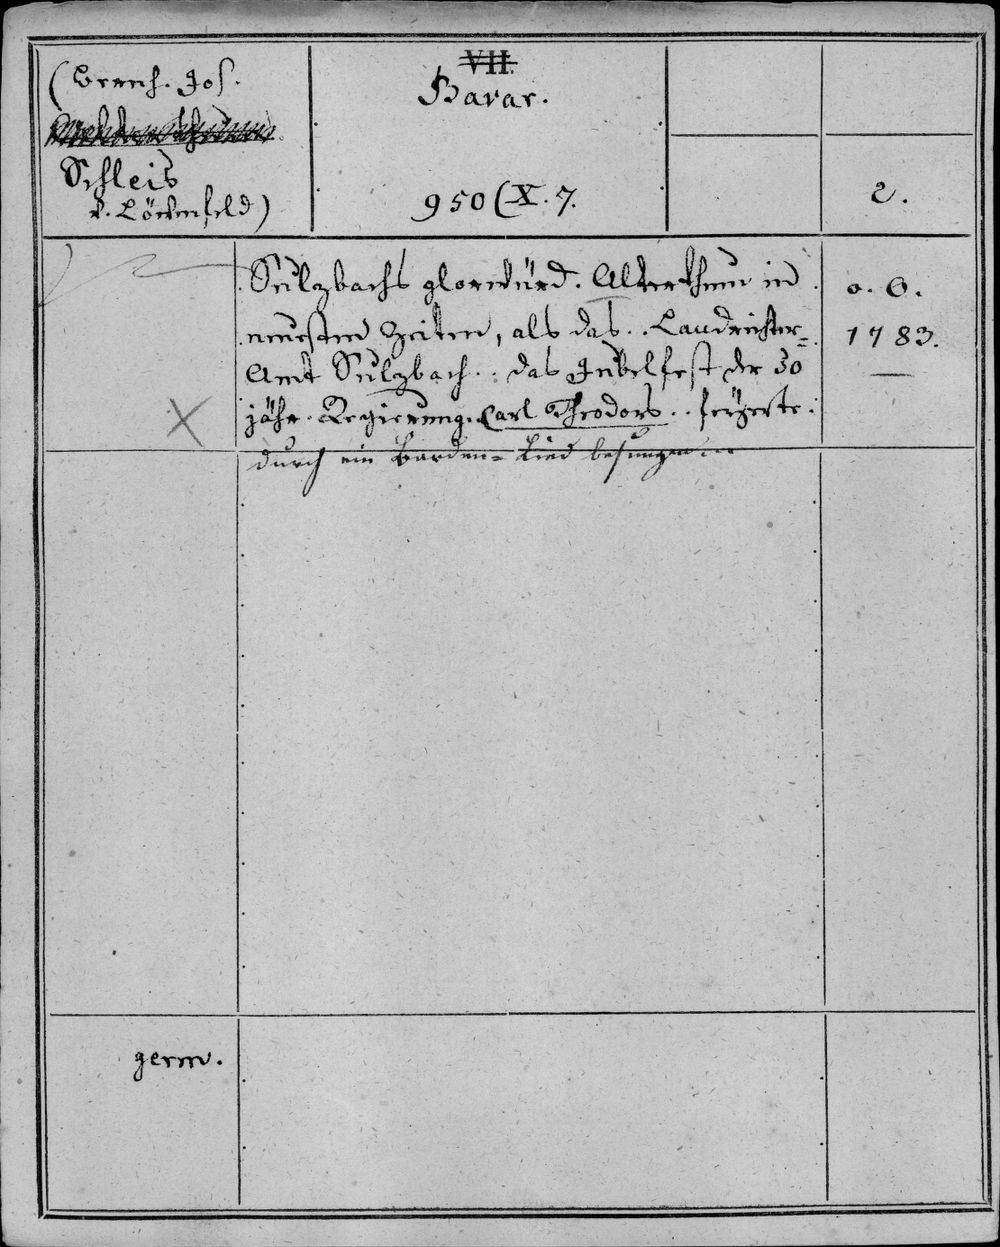 (Bernh. Jos.
Schleis
v. Löwenfeld)
VII.
Bavar.
950 (X. 7.
2.
Sulzbachs glorwürd. Alterthum in
neuesten Zeiten, als das.. Landrichter=
Amt Sulzbach.. das Jubelfest der 50
jähr. Regierung Carl Theodors.. feyerte.
durch ein Barden= Lied besungen
o. O.
1783.
germ.